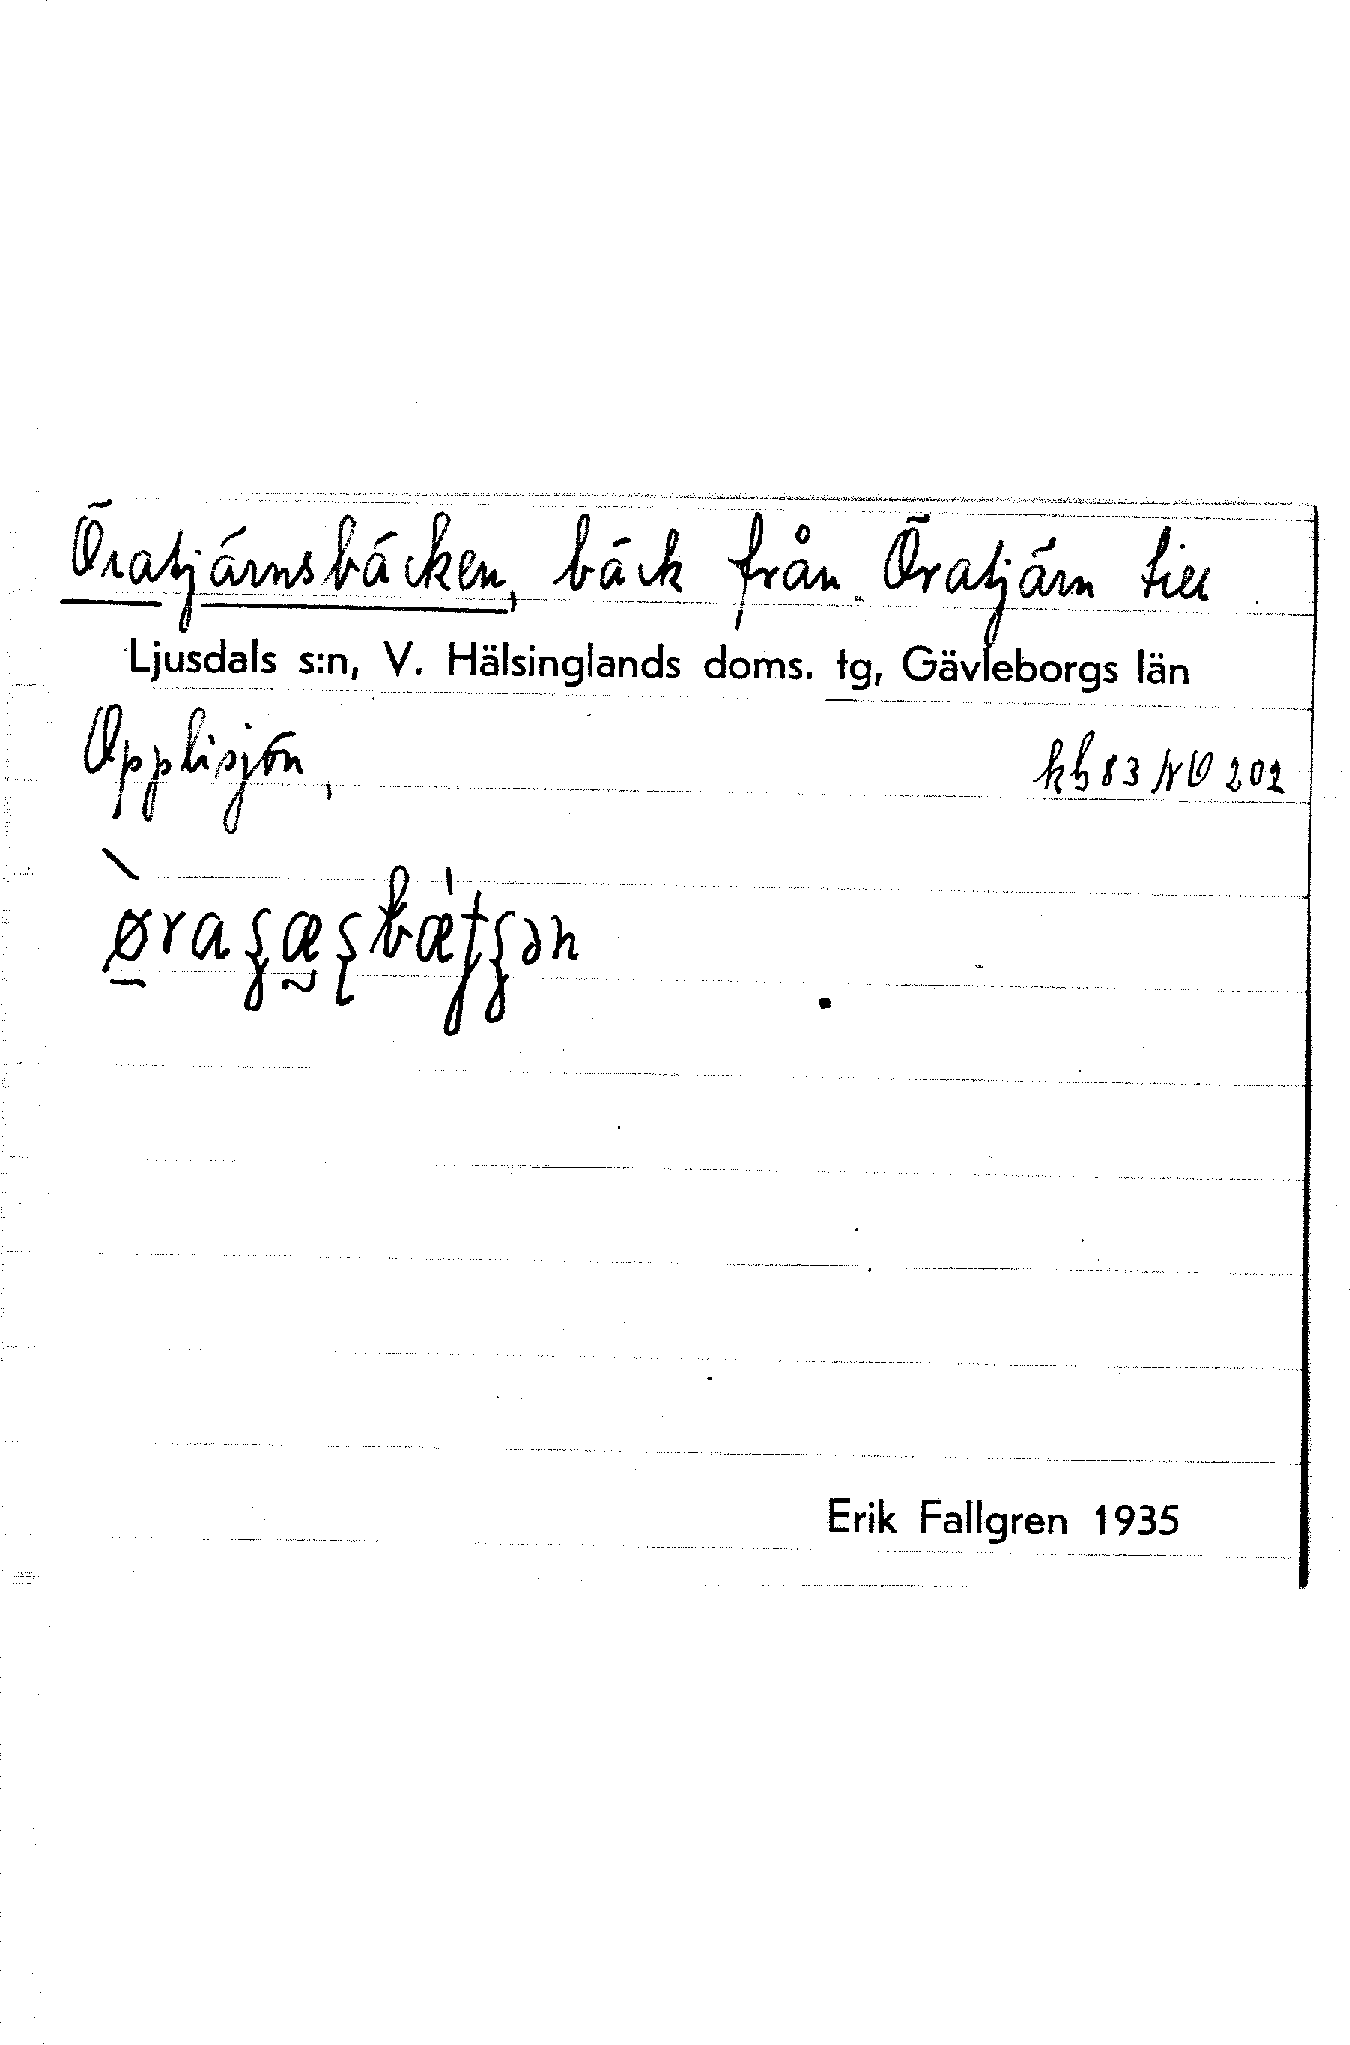 Öratjärnsbäcken, bäck från Öratjärn till
Ljusdals s:n, V. Hälsinglands doms. tg, Gävleborgs län
Opplisjön, kb 83 NO 202
Erik Fallgren 1935